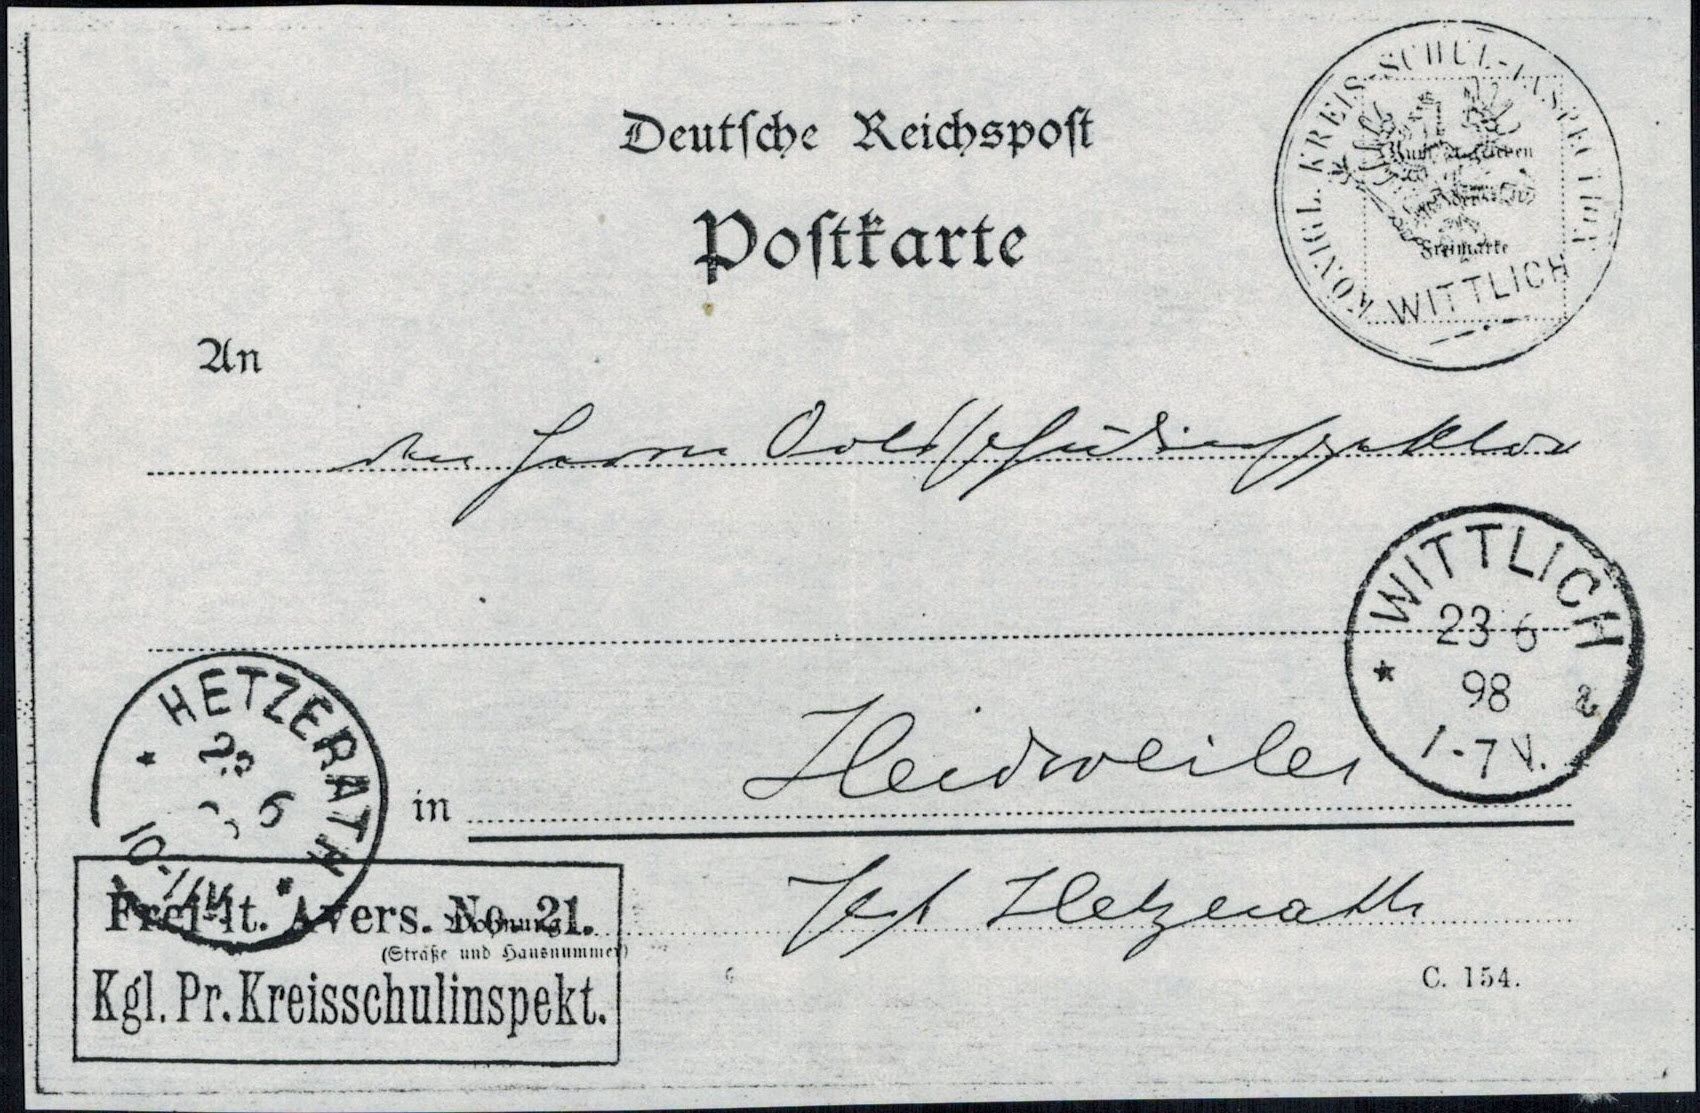 Deutsche Reichspost
Postkarte
KÖNIGL. KREIS-SCHUL-INSPECTION
WITTLICH
Zum Aufkleben
der
Freimarke
An
den Herrn Ortsschulinspektor
WITTLICH
23 6
98
1-7 V.
a
HETZERATH
23 6
10-11V
in
Heidweiler
Post Hetzerath
Frei lt. Avers. No. 21.
Kgl. Pr. Kreisschulinspekt.
Wohnung
(Straße und Hausnummer)
C. 154.